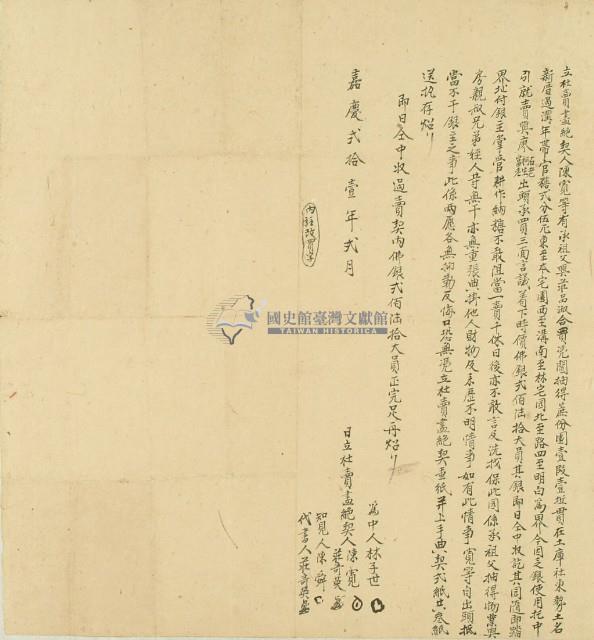 立杜賣盡絕契人陳寬等有承祖父與莊呂淑合買荒園抽得應份園壹段壹坵貫在土庫社東勢土名
新厝過溝年帶上官租弍分伍厘東至本宅園西至溝南至林宅園北至路四至明白為界今因乏銀使用托中
引就賣與廖 出頭承買三面言議着下時價佛銀弍佰陸拾大員其銀即日仝中收訖其園隨即踏
界址付銀主掌管耕作納租不敢阻當一賣千休日後亦不敢言及洗找保此園係承祖父抽得物業與
房親叔兄弟姪人等無干亦無重張典掛他人財物及來歷不明情事如有此情事寬等自出頭抵
當不干銀主之事此係兩愿各無抑勒反悔口恐無憑立杜賣盡絕契壹紙并上手典契弍紙共叁紙
送执存炤
即日仝中收過賣契內佛銀弍佰陸拾大員正完足再炤
為中人林子世
日立杜賣盡絕契人陳寬
莊奇
知見人陳舜
代書人莊奇英
嘉慶弍拾壹年弍月
內註改買字
國史館臺灣文獻館
TAIWAN HISTORICA